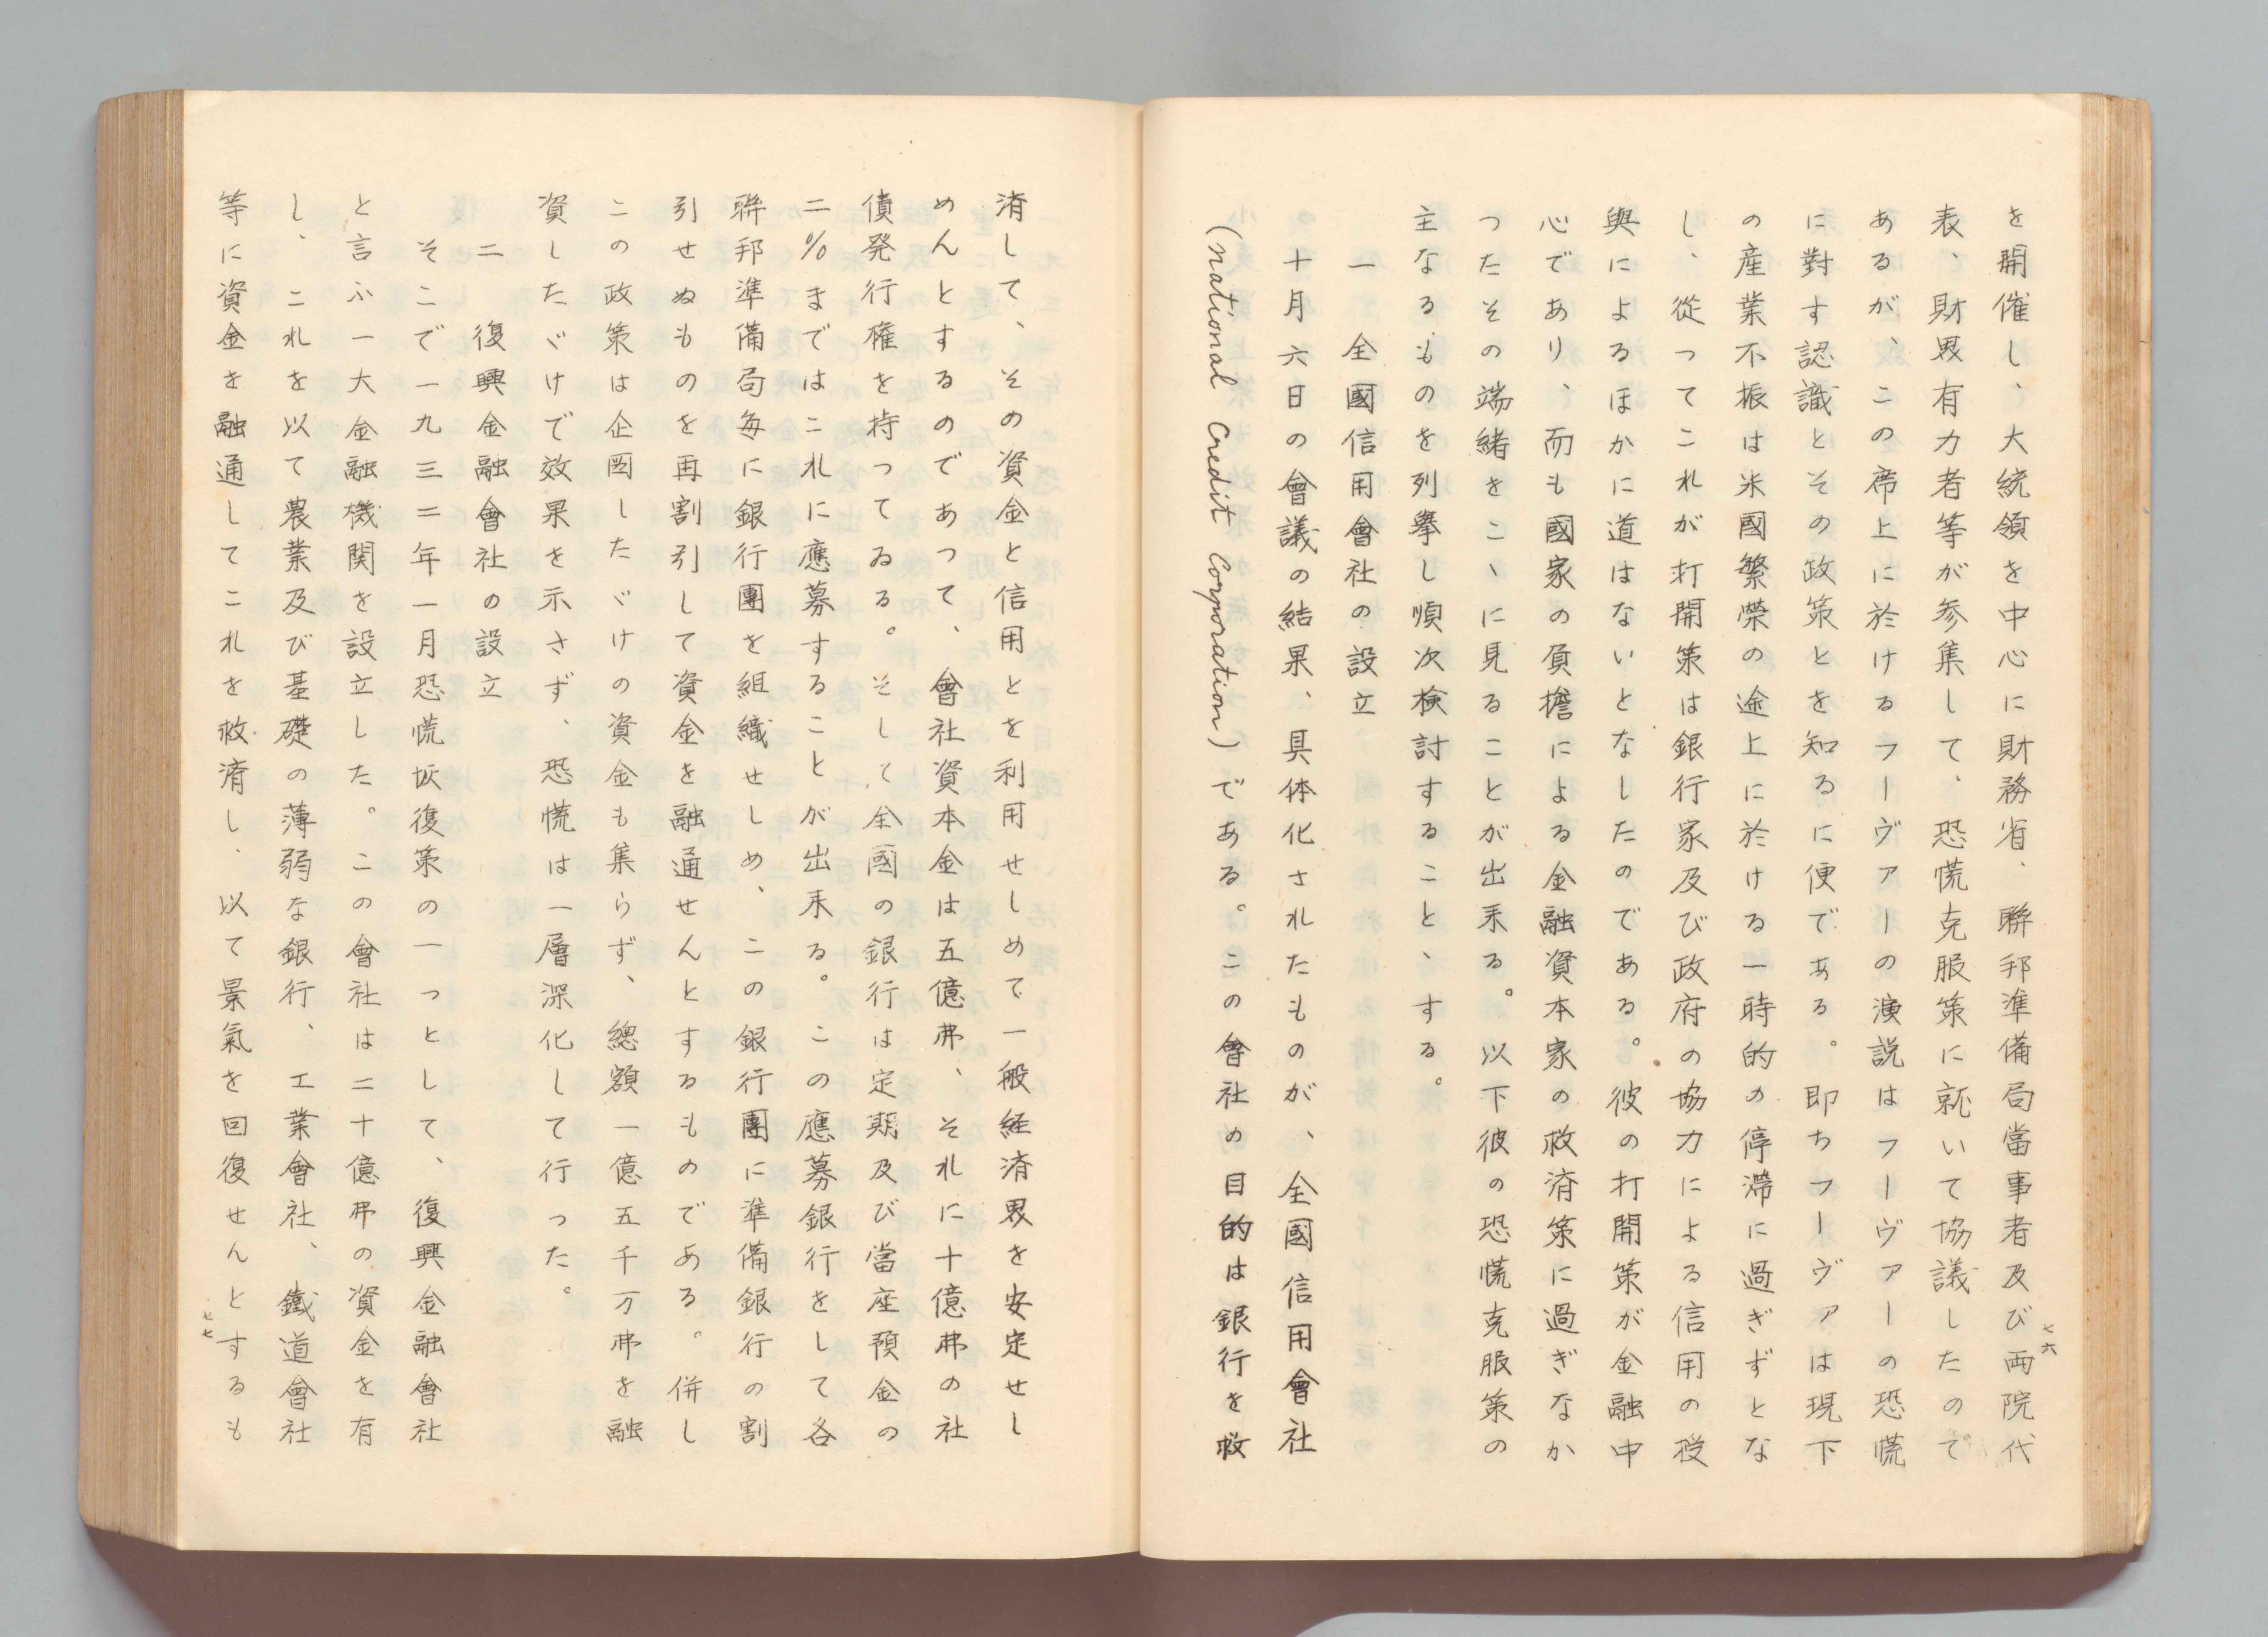 を開催し、大統領を中心に財務省、聯邦準備局當事者及び両院代
表、財界有力者等が参集して、恐慌克服策に就いて協議したので
あるが、この席上に於けるフーヴァーの演説はフーヴァーの恐慌
に對す認識とその政策とを知るに便である。即ちフーヴァは現下
の産業不振は米國繁榮の途上に於ける一時的の停滞に過ぎずとな
し、從つてこれが打開策は銀行家及び政府の協力による信用の授
與によるほかに道はないとなしたのである。彼の打開策が金融中
心であり、而も國家の負擔による金融資本家の救済策に過ぎなか
つたその端緒をこゝに見ることが出来る。以下彼の恐慌克服策の
主なるものを列擧し順次検討すること、する。
一 全國信用會社の設立
十月六日の會議の結果、具体化されたものが、全國信用會社
(national Credit Corporation)である。この會社の目的は銀行を救
七六
済して、その資金と信用とを利用せしめて一般経済界を安定せし
めんとするのであつて、會社資本金は五億弗、それに十億弗の社
債発行權を持つてゐる。そして全國の銀行は定期及び當座預金の
二%まではこれに應募することが出来る。この應募銀行をして各
聯邦準備局毎に銀行團を組織せしめ、この銀行團に準備銀行の割
引せぬものを再割引して資金を融通せんとするものである。併し
この政策は企図したゞけの資金も集らず、總額一億五千万弗を融
資したゞけで效果を示さず、恐慌は一層深化して行つた。
二 復興金融會社の設立
そこで一九三二年一月恐慌恢復策の一つとして、復興金融會社
と言ふ一大金融機関を設立した。この會社は二十億弗の資金を有
し、これを以て農業及び基礎の薄弱な銀行、工業會社、鐵道會社
等に資金を融通してこれを救済し、以て景氣を回復せんとするも
七七